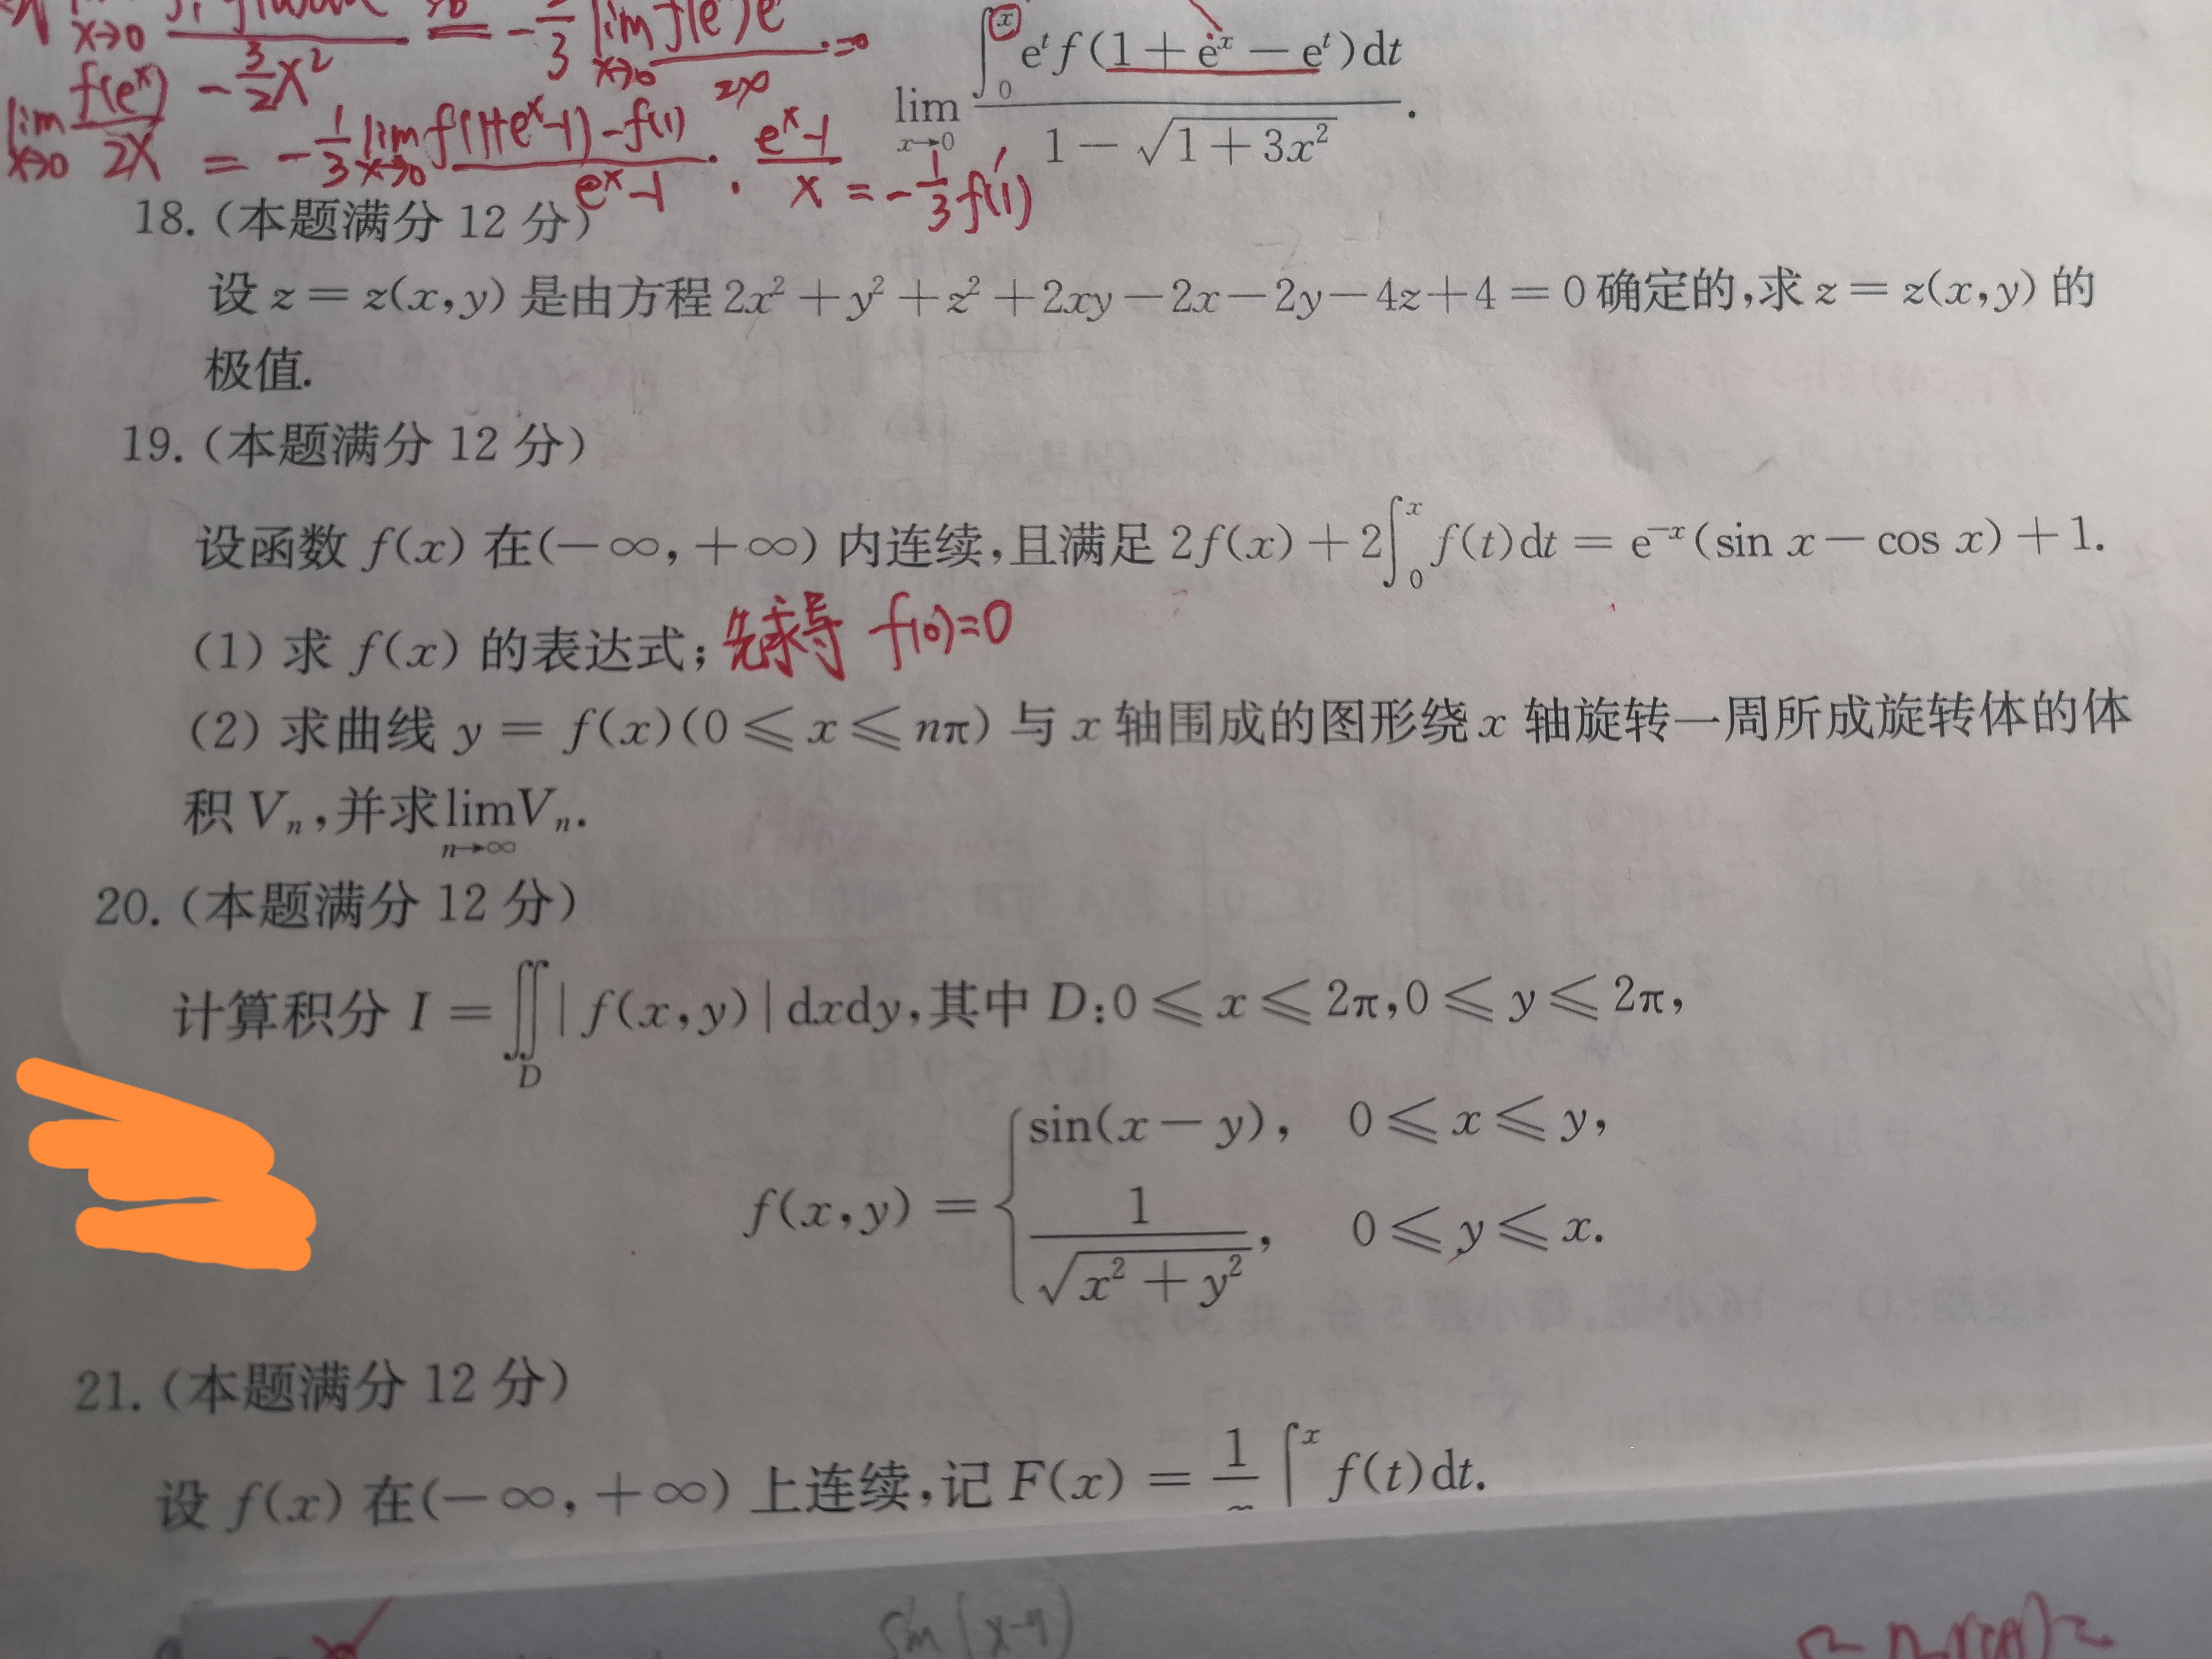 lim x→0 = -2/3 lim x→0 f(e^x)e^x / 2x
∫₀ˣ eᵗ f(1 + eˣ − eᵗ)dt
f(eˣ) −3/2 x²
lim x→0 ———————————— .
1 − √(1 + 3x²)
lim x→0 2x = −1/3 lim x→0 f(1+eˣ−1)−f(1) / eˣ−1 · eˣ−1 / x = −1/3 f′(1)
18.(本题满分 12 分)
设 z = z(x,y) 是由方程 2x² + y² + z² + 2xy − 2x − 2y − 4z + 4 = 0 确定的,求 z = z(x,y) 的
极值.
19.(本题满分 12 分)
设函数 f(x) 在(−∞,+∞) 内连续,且满足 2f(x) + 2∫₀ˣ f(t)dt = e⁻ˣ(sin x − cos x) + 1.
(1) 求 f(x) 的表达式; 先求导 f(0)=0
(2) 求曲线 y = f(x)(0 ⩽ x ⩽ nπ) 与 x 轴围成的图形绕 x 轴旋转一周所成旋转体的体
积 Vₙ,并求 lim n→∞ Vₙ.
20.(本题满分 12 分)
计算积分 I = ∬_D | f(x,y) | dxdy,其中 D:0 ⩽ x ⩽ 2π,0 ⩽ y ⩽ 2π,
sin(x − y), 0 ⩽ x ⩽ y,
f(x,y) = {
1/√(x² + y²), 0 ⩽ y ⩽ x.
21.(本题满分 12 分)
设 f(x) 在(−∞,+∞) 上连续,记 F(x) = 1 ∫ˣ f(t)dt.
sin(x-y)